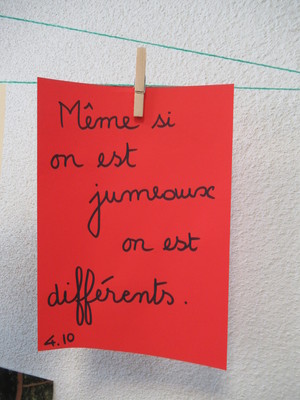 Même si
on est
jumeaux
on est
différents.
4.10